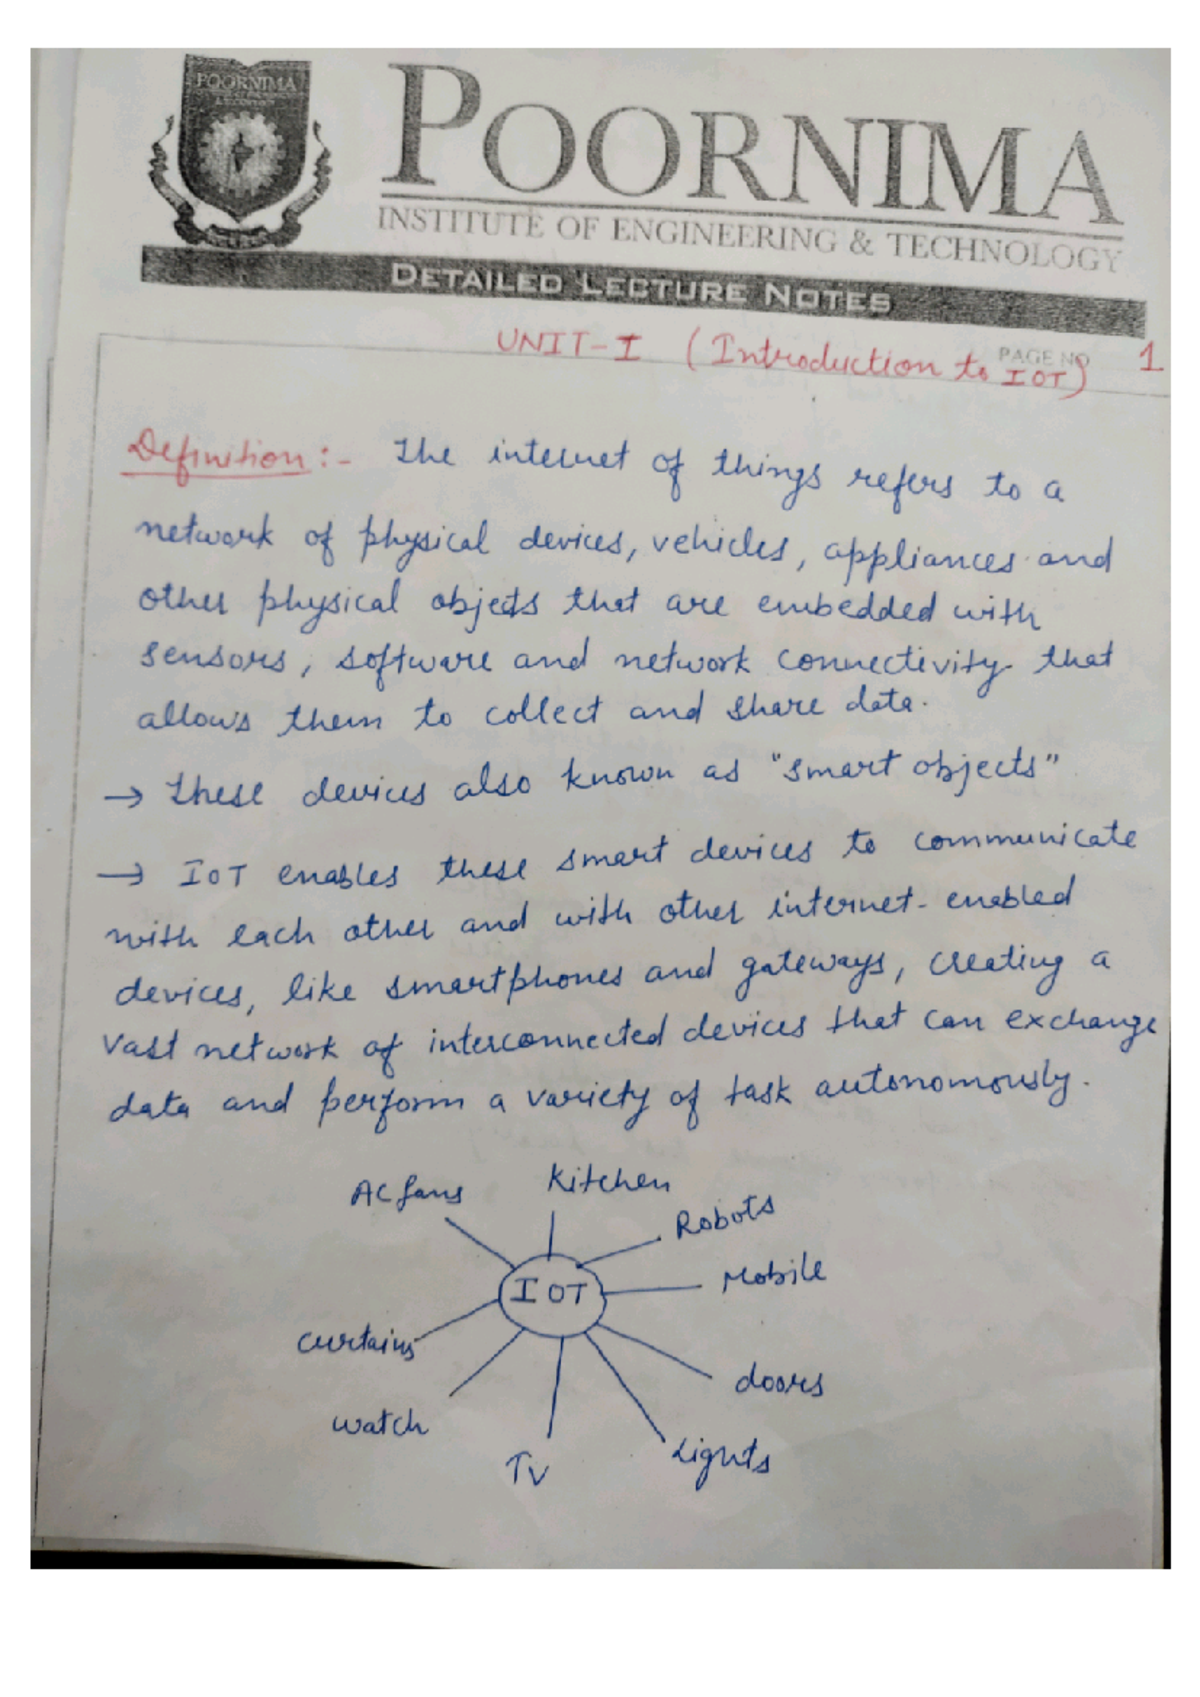 POORNIMA
POORNIMA
INSTITUTE OF ENGINEERING & TECHNOLOGY
DETAILED LECTURE NOTES
PAGE NO 1
UNIT-I (Introduction to IOT)
Definition :- The internet of things refers to a
network of physical devices, vehicles, appliances and
other physical objects that are embedded with
sensors, software and network connectivity that
allows them to collect and share data.
→ These devices also known as "smart objects"
→ IoT enables these smart devices to communicate
with each other and with other internet-enabled
devices, like smartphones and gateways, creating a
vast network of interconnected devices that can exchange
data and perform a variety of task autonomously.
AC fans
Kitchen
Robots
IOT
Mobile
curtains
doors
watch
TV
Lights